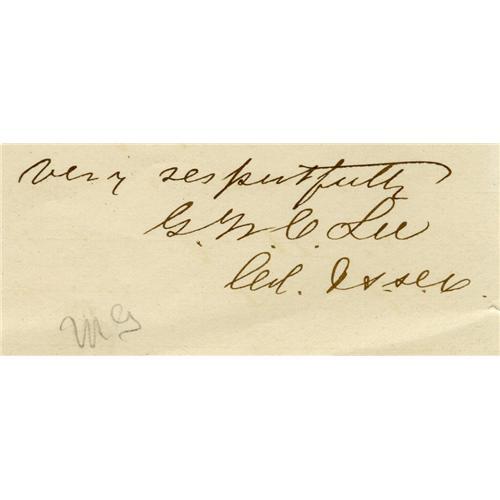 very respectfully
G. W. C. Lee
Col.
MG